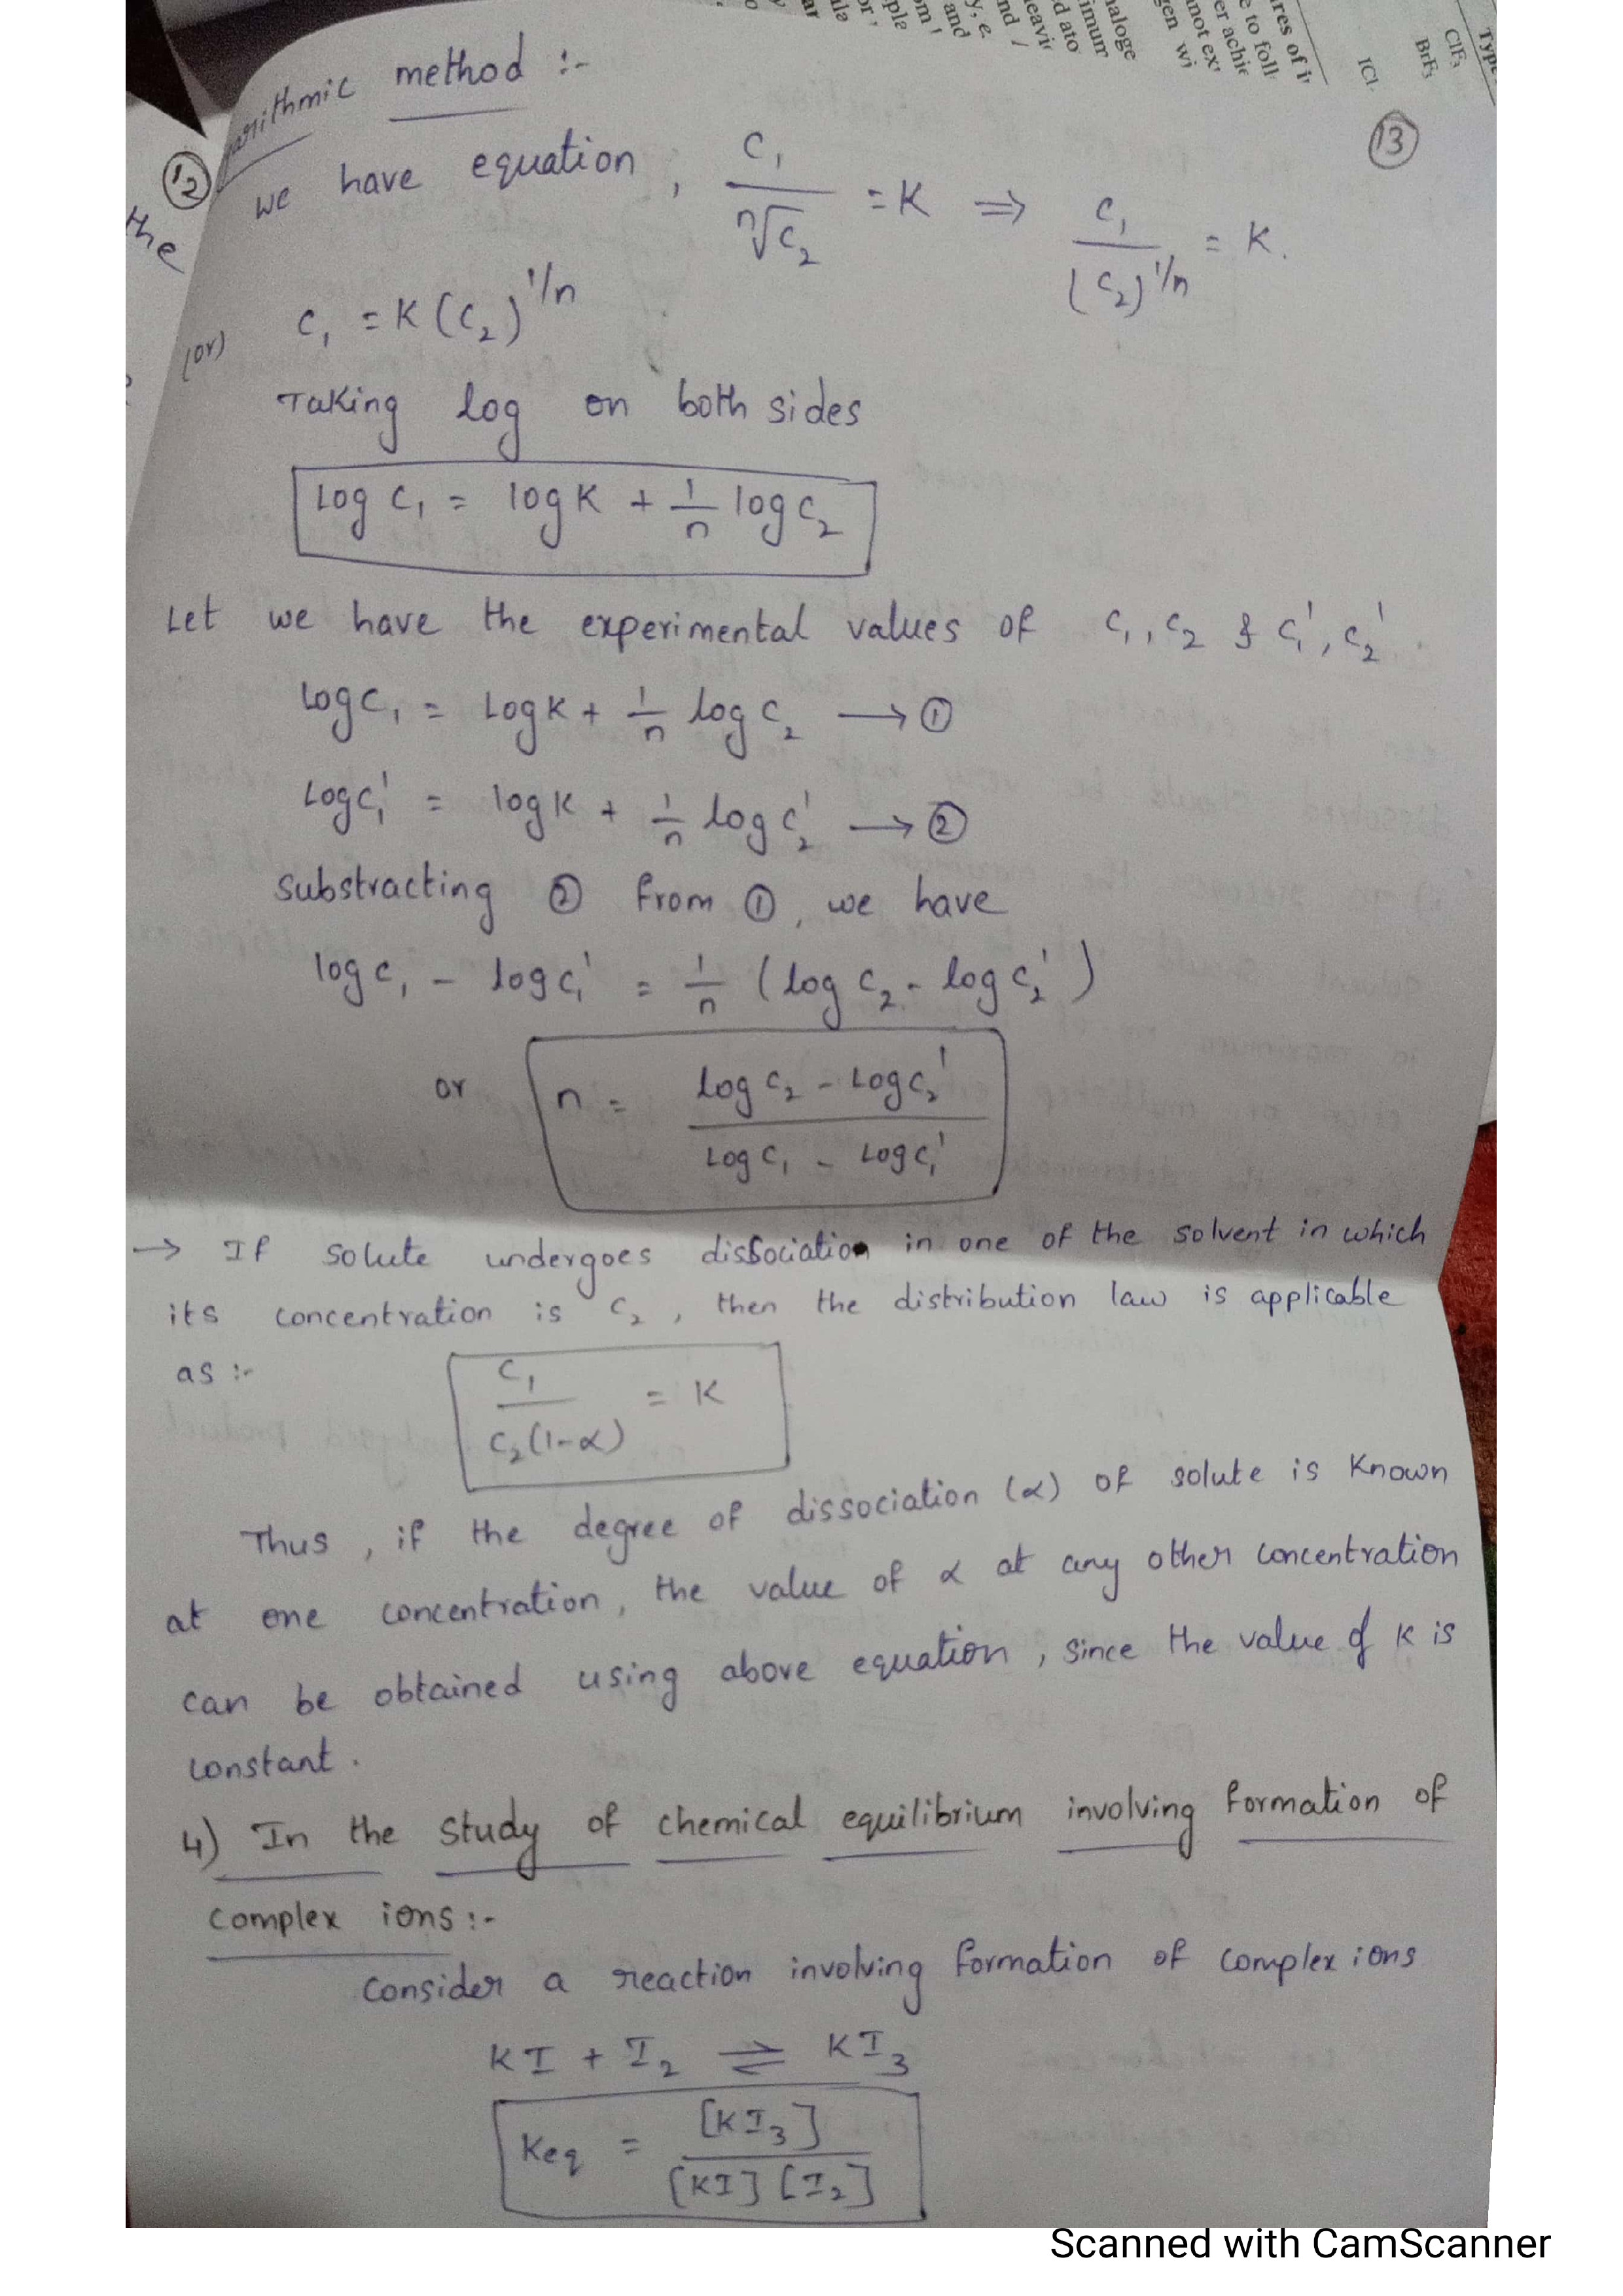 method :-
13
12
we have equation, C₁/ⁿ√C₂ = K ⇒ C₁/(C₂)^1/n = K.
the
(or) C₁ = K(C₂)^1/n
Taking log on both sides
Log C₁ = log K + 1/n log C₂
Let we have the experimental values of C₁, C₂ & C₁', C₂'.
Log C₁ = Log K + 1/n log C₂ → ①
Log C₁' = log K + 1/n log C₂' → ②
Substracting ② from ①, we have
log C₁ - log C₁' = 1/n (log C₂ - log C₂')
or n = log C₂ - Log C₂' / Log C₁ - Log C₁'
→ If solute undergoes dissociation in one of the solvent in which
its concentration is C₂, then the distribution law is applicable
as :- C₁/C₂(1-α) = K
Thus, if the degree of dissociation (α) of solute is Known
at one concentration, the value of α at any other concentration
can be obtained using above equation, since the value of K is
constant.
4) In the study of chemical equilibrium involving formation of
complex ions :-
Consider a reaction involving formation of complex ions
KI + I₂ ⇌ KI₃
Keq = [KI₃]/[KI][I₂]
Scanned with CamScanner